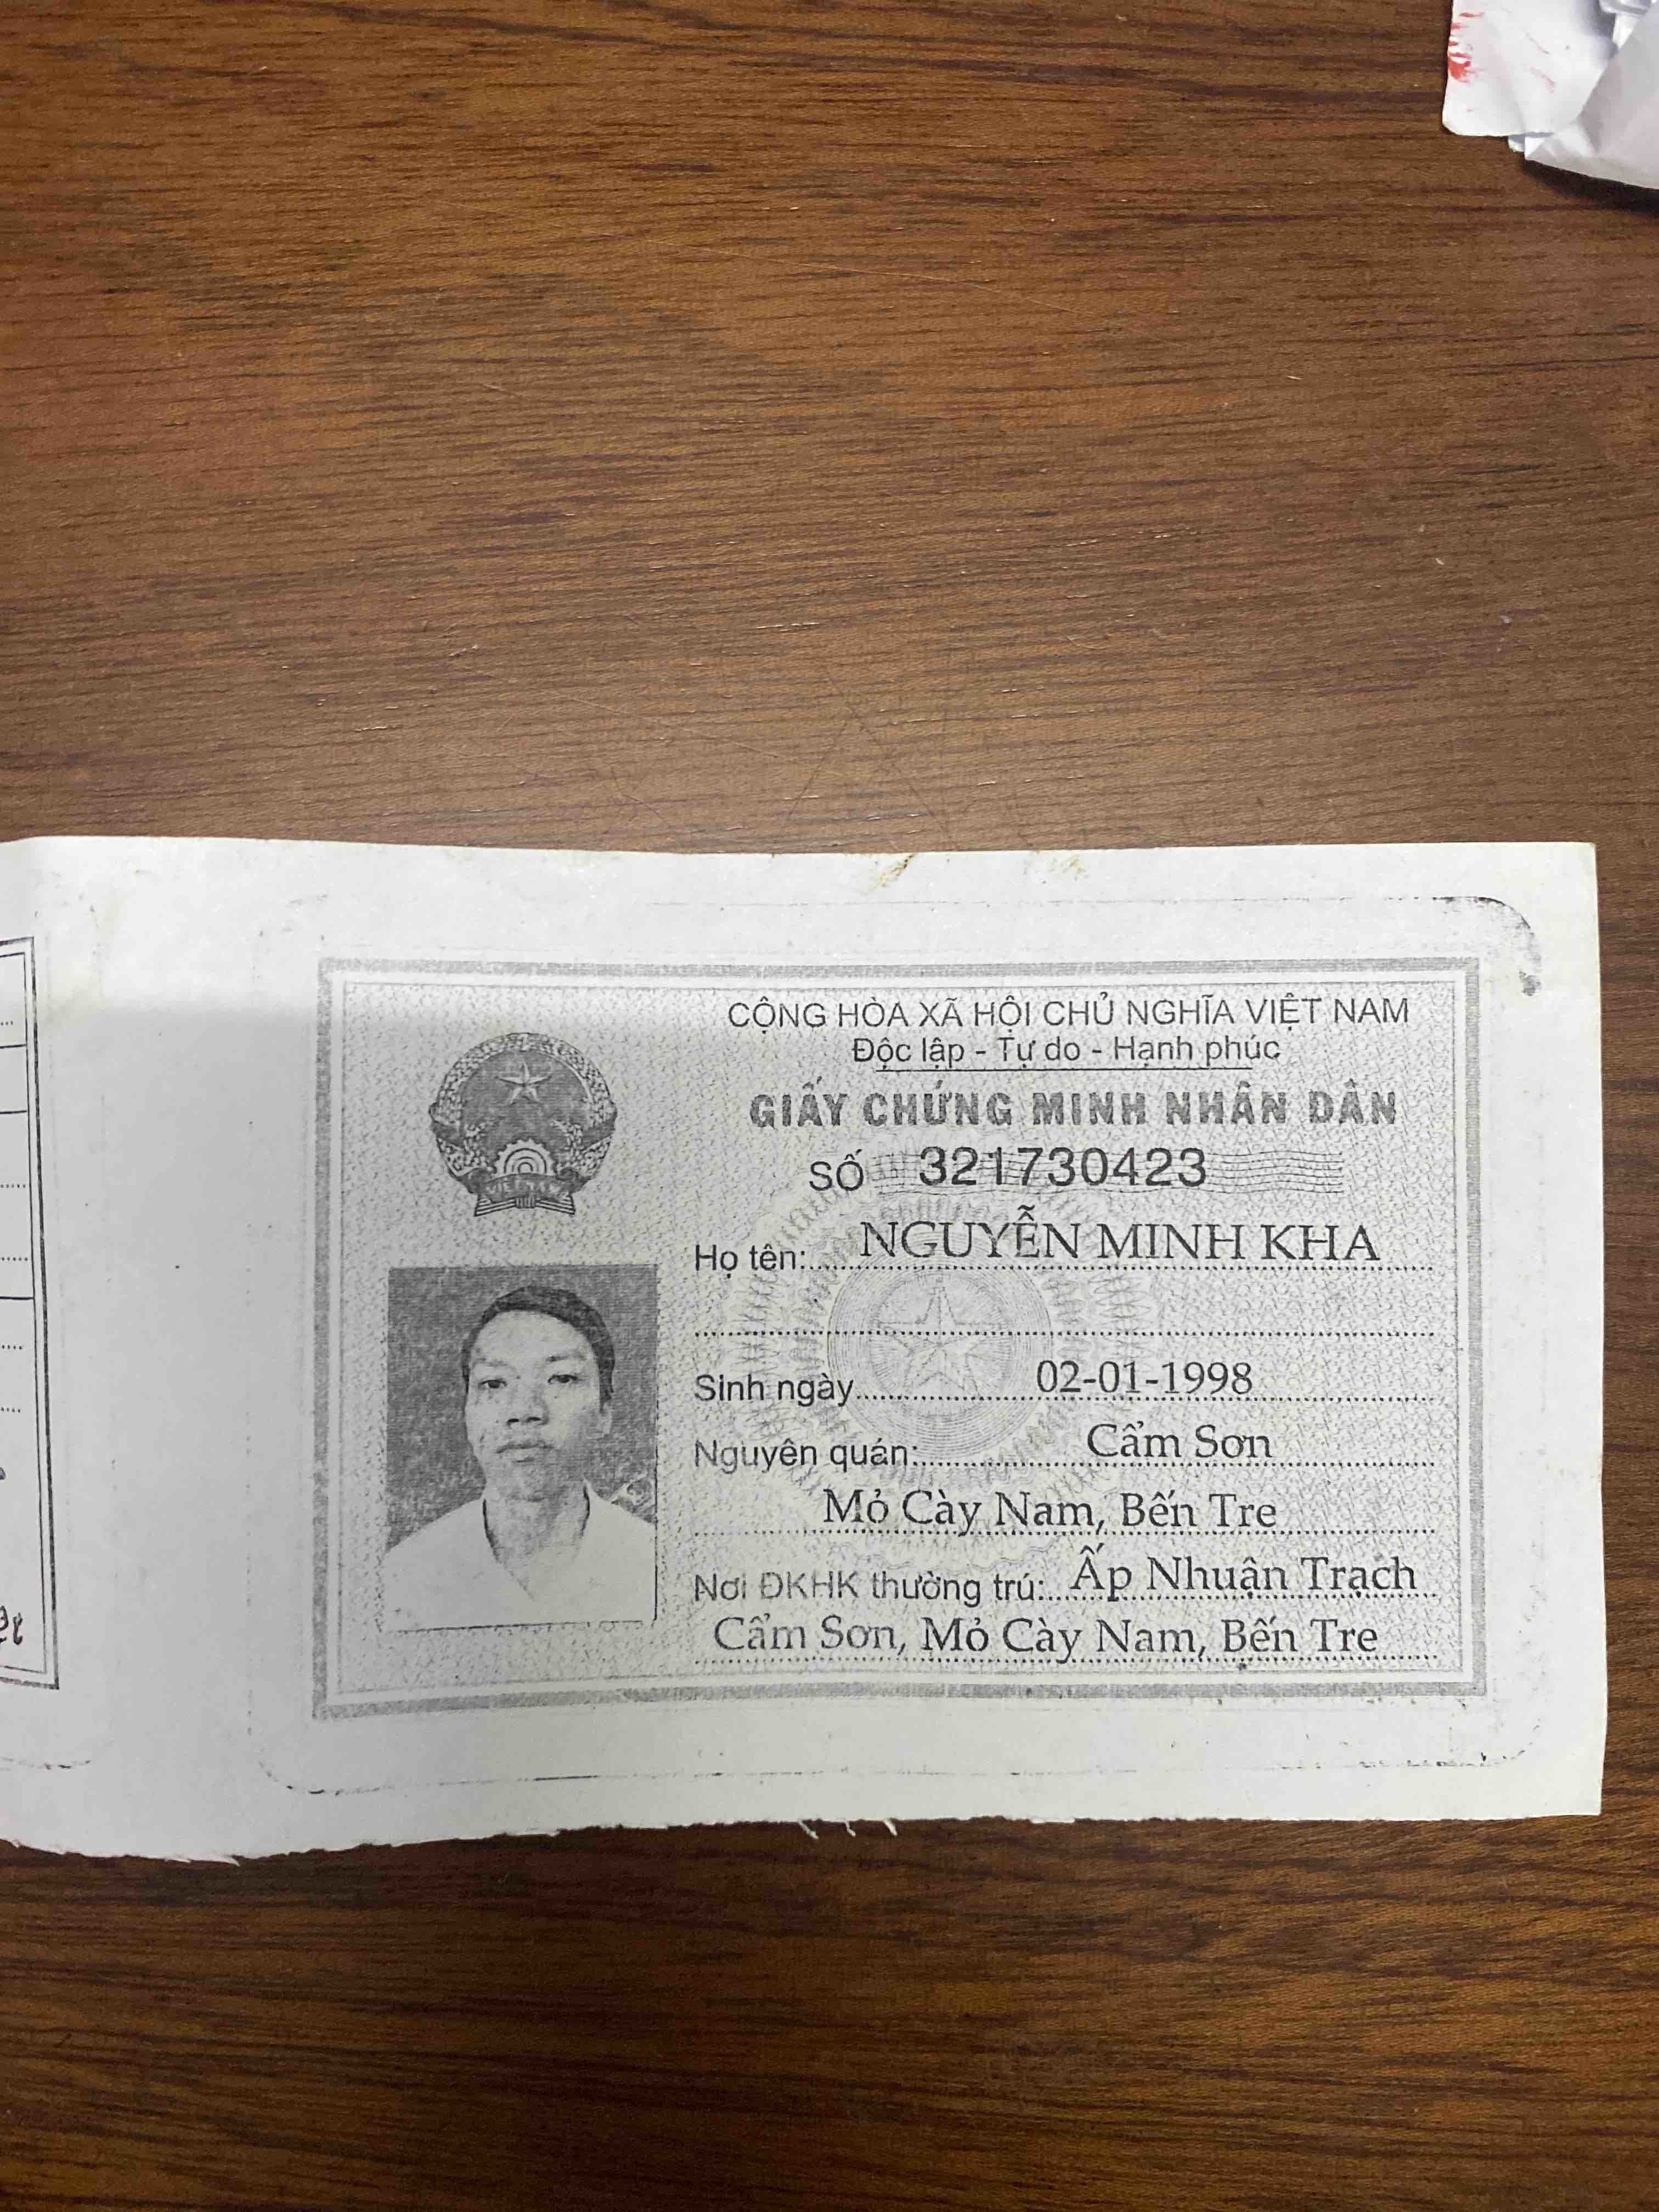 CỘNG HÒA XÃ HỘI CHỦ NGHĨA VIỆT NAM
Độc lập - Tự do - Hạnh phúc
GIẤY CHỨNG MINH NHÂN DÂN
SỐ 321730423
VIỆT NAM
Họ tên: NGUYỄN MINH KHA
Sinh ngày 02-01-1998
Nguyên quán: Cẩm Sơn
Mỏ Cày Nam, Bến Tre
Nơi ĐKHK thường trú: Ấp Nhuận Trạch
Cẩm Sơn, Mỏ Cày Nam, Bến Tre